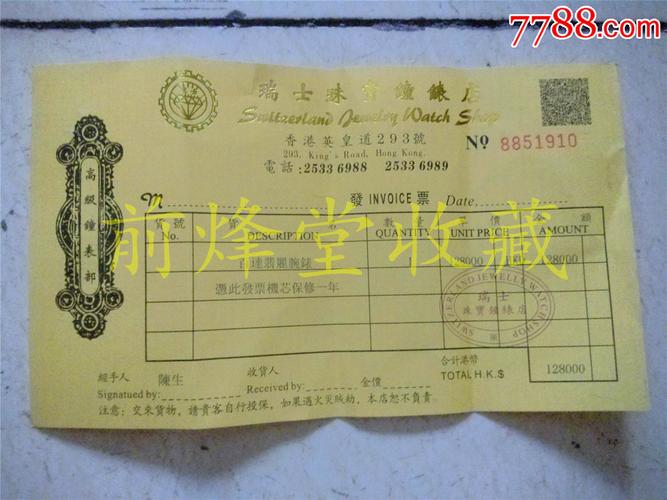 7788.com
瑞士珠寶鐘錶店
Switzerland Jewelry Watch Shop
香港英皇道293號
293, King's Road, Hong Kong.
電話:2533 6988 2533 6989
No 8851910
高級鐘表部
M
發 INVOICE 票 Date,
貨號 貨 名 數量 單價 金額
No. DESCRIPTION QUANTITY UNIT PRICE AMOUNT
百達翡麗腕錶 128000 128000
憑此發票機芯保修一年
SWITZERLAND JEWELLY WATCH SHOP
瑞士
珠寶鐘錶店
合計港幣
TOTAL H.K.$ 128000
經手人 陳生 收貨人
Signatued by: Received by: 金價
注意: 交來貨物，請貴客自行投保，如果遇火災賊劫，本店恕不負責。
前烽堂收藏